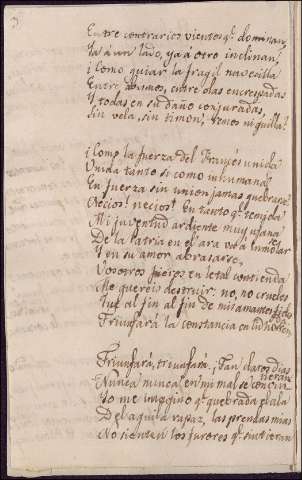 Entre contrarios vientos q.e dominan,
Ya á un lado, ya á otro inclinan,
¿Como guiar la fragil navecilla
Entre abismos, entre olas encrespadas
Y todas en su daño conjuradas,
Sin vela, sin timón, remos ni quilla?

la fuerza del Francés unida
Unida tanto si como inhumana,
En fuerza sin union jamas
Necios! necios! En tanto q.e
Mi juventud ardiente muy ufana
De la Patria en el ara vá á inmolarse
Y en su amor abrasarse,
Vosotros fieros en letal contienda
Me quereis destruir: no, no crueles
Que al fin al fin de mis amantes fieles
Triunfará la constancia

Triunfará, triunfará; Tan claros dias
Nunca nunca en mi mal se
Yo me imagino q.e quebrada el ala
Del aguila rapaz, las prendas mias
No sienten los furores q.e sintieran